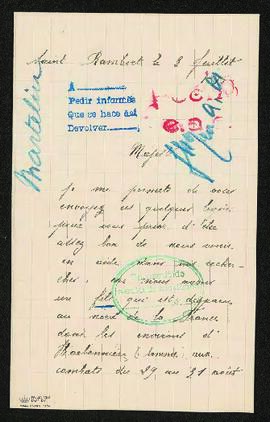 Saint Rambert le 9 Juillet
A
Pedir informes
Que se hace así
Devolver
Martelin
Majesté
je me permets de vous
envoyez ces quelques lignes
pour vous prier d'être
assez bon de nous venir
en aide dans nos recher-
ches, car nous avons
un fils qui est disparu
au nord de la France
dans les environs d'
Harbonnières (Somme) aux
combats du 29 au 31 août